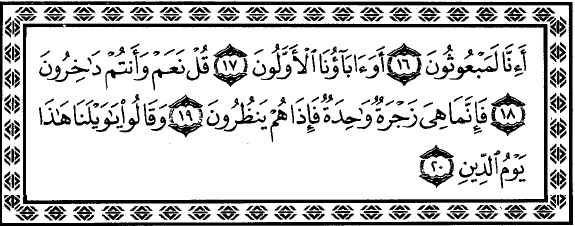 أَءِنَّا لَمَبْعُوثُونَ ١٦ أَوَءَابَآؤُنَا ٱلْأَوَّلُونَ ١٧ قُلْ نَعَمْ وَأَنتُمْ دَٰخِرُونَ
١٨ فَإِنَّمَا هِىَ زَجْرَةٌ وَٰحِدَةٌ فَإِذَا هُمْ يَنظُرُونَ ١٩ وَقَالُوا۟ يَٰوَيْلَنَا هَٰذَا
يَوْمُ ٱلدِّينِ ٢٠